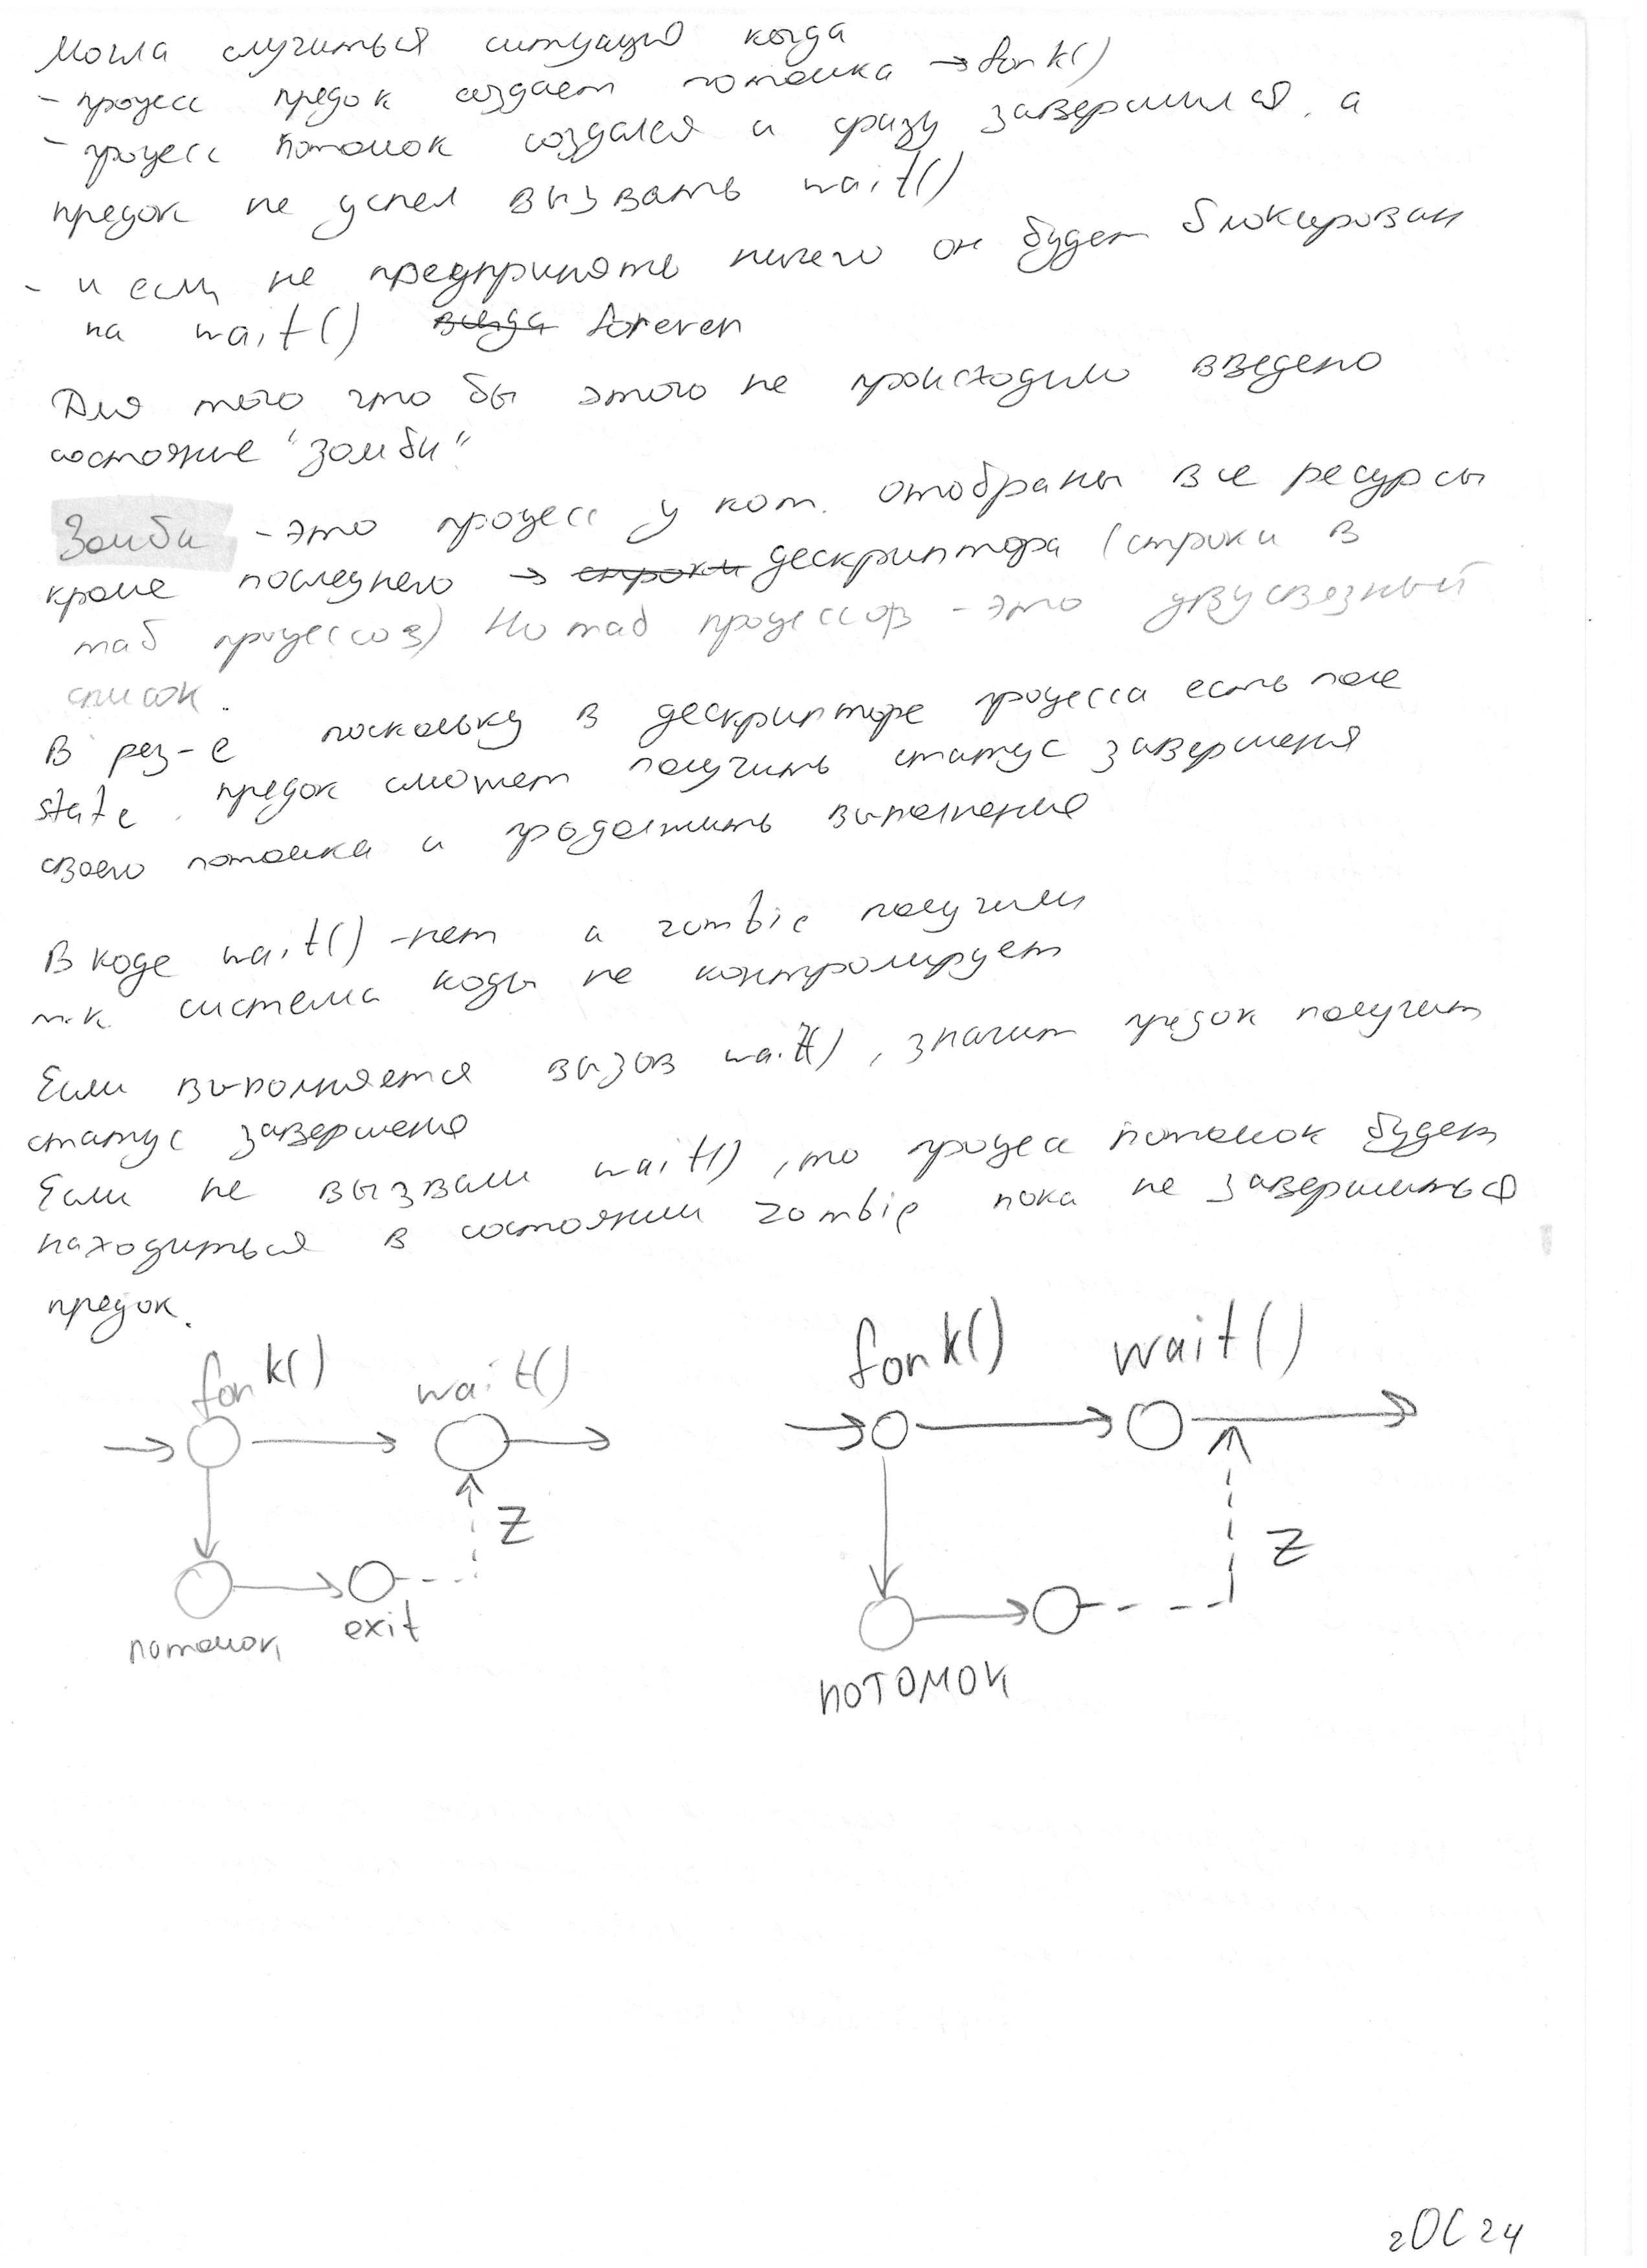 Могла случиться ситуация когда
- процесс предок создает потомка → fork()
- процесс потомок создался и сразу завершился, а
предок не успел вызвать wait()
- и если не предпринять ничего он будет блокирован
на wait() всегда forever
Для того что бы этого не происходило введено
состояние "зомби"
Зомби - это процесс у кот. отобраны все ресурсы
кроме последнего → строки дескриптора (строки в
таб процессов) Но таб процессов - это двусвязный
список.
В рез-е поскольку в дескрипторе процесса есть поле
state, предок сможет получить статус завершения
своего потомка и продолжить выполнение
В коде wait() - нет а zombie получили
т.к. система коды не контролирует
Если выполняется вызов wait(), значит предок получит
статус завершения
Если не вызвали wait(), то процесс потомок будет
находиться в состоянии zombie пока не завершиться
предок.
fork() wait()
Z
exit
потомок
fork() wait()
Z
потомок
2 ОС 24